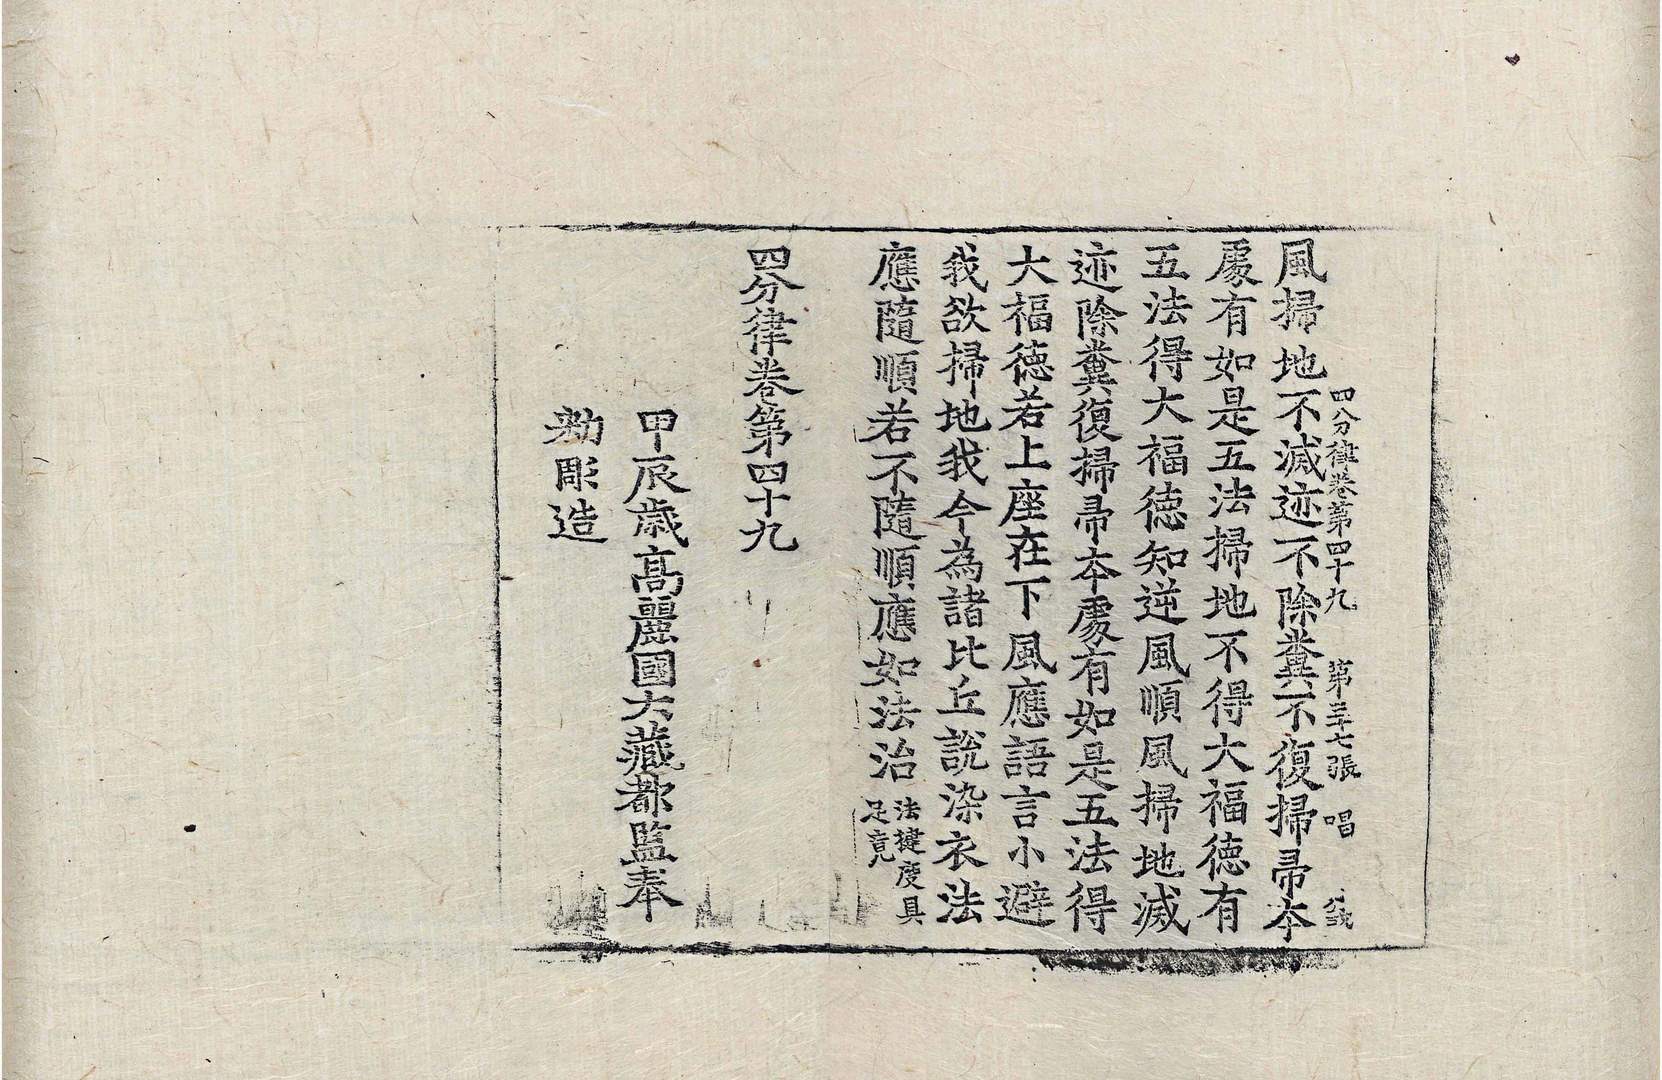 四分律卷第四十九 第三十七張 唱
風掃地不滅迹不除糞不復掃帚本
處有如是五法掃地不得大福德有
五法得大福德知逆風順風掃地滅
迹除糞復掃帚本處有如是五法得
大福德若上座在下風應語言小避
我欲掃地我今為諸比丘說染衣法
應隨順若不隨順應如法治 法揵度具
足竟
四分律卷第四十九
甲辰歲高麗國大藏都監奉
勑彫造